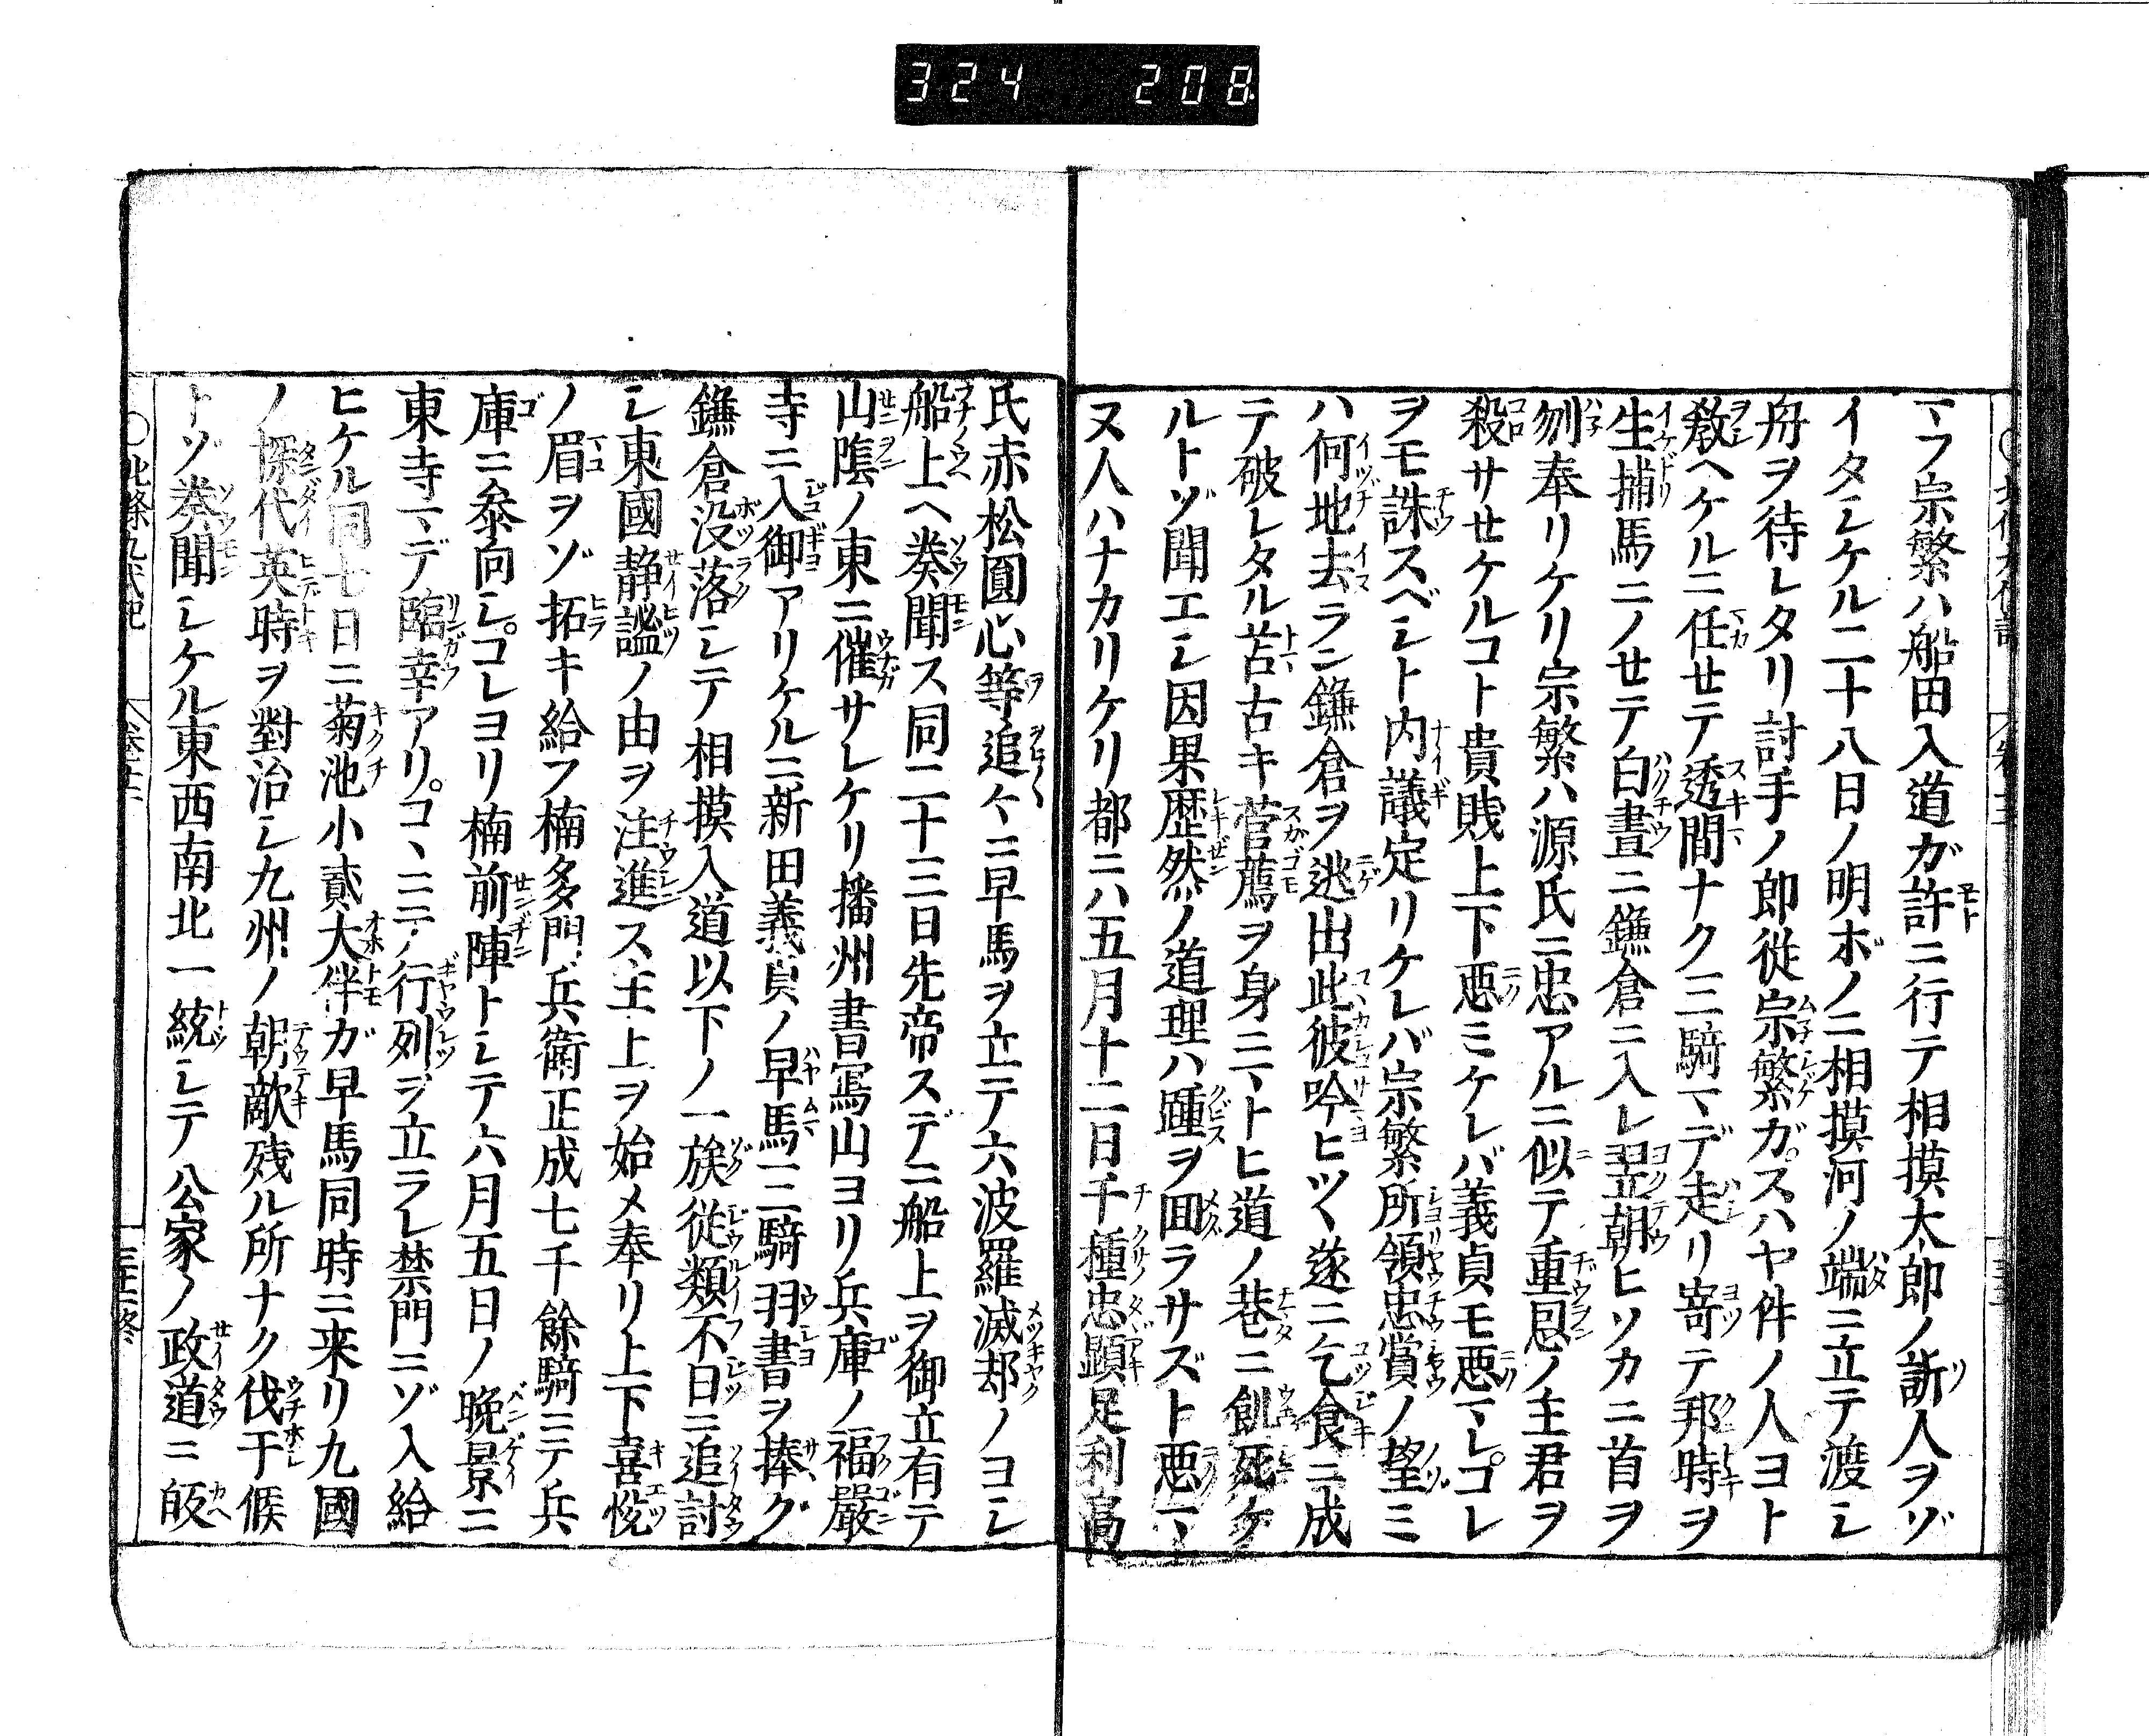 324 208
マフ宗繁ハ船田入道ガ許ニ行テ相摸太郎ノ訴人ヲゾ
イタシケル二十八日ノ明ボノニ相摸河ノ端ニ立テ渡シ
舟ヲ待レタリ討手ノ郎従宗繁ガスハヤ件ノ人ヨト
敎ヘケルニ任セテ透間ナク三騎マデ走リ寄テ邦時ヲ
生捕馬ニノセテ白晝ニ鎌倉ニ入レ翌朝ヒソカニ首ヲ
刎奉リケリ宗繁ハ源氏ニ忠アルニ似テ重恩ノ主君ヲ
殺サセケルコト貴賎上下悪ミケレバ義貞モ悪マレコレ
ヲモ誅スベシト内議定リケレバ宗繁所領忠賞ノ望ミ
ハ何地去ラン鎌倉ヲ逃出此彼吟ヒツヽ遂ニ乞食ニ成
テ破レタル苫古キ菅薦ヲ身ニマトヒ道ノ巷ニ飢死ケ
ルトゾ聞エシ因果歴然ノ道理ハ踵ヲ囬ラサズト悪マ
ヌ人ハナカリケリ都ニハ五月十二日千種忠顕足利高
氏赤松圓心等追々ニ早馬ヲ立テ六波羅滅却ノヨシ
船上ヘ奏聞ス同二十三日先帝スデニ船上ヲ御立有テ
山陰ノ東ニ催サレケリ播州書寫山ヨリ兵庫ノ福嚴
寺ニ入御アリケルニ新田義貞ノ早馬三騎羽書ヲ捧グ
鎌倉没落シテ相摸入道以下ノ一族従類不日ニ追討
シ東國静謐ノ由ヲ注進ス主上ヲ始メ奉リ上下喜悦
ノ眉ヲゾ拓キ給フ楠多門兵衛正成七千餘騎ニテ兵
庫ニ参向シコレヨリ楠前陣トシテ六月五日ノ晩景ニ
東寺マデ臨幸アリコヽニテ行列ヲ立ラレ禁門ニゾ入給
ヒケル同七日ニ菊池小貳大伴ガ早馬同時ニ来リ九國
ノ探代英時ヲ對治シ九州ノ朝敵残ル所ナク伐干候
トゾ奏聞シケル東西南北一統シテ公家ノ政道ニ皈
〇北條九代記